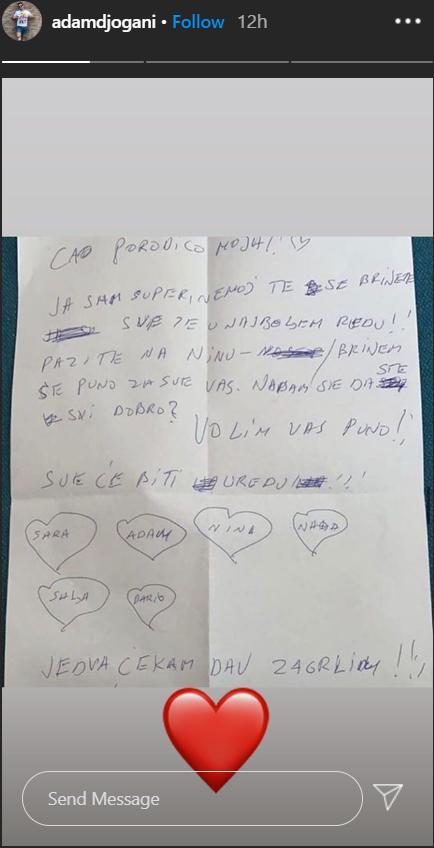 adamdjogani • Follow 12h
CAO PORODICO MOJA!!
JA SAM SUPER, NEMOJ TE SE BRINETE
SVE JE U NAJBOLEM REDU!!
PAZITE NA NINU - / BRINEM
ŠE PUNO ZA SVE VAS. NADAM SIE DA STE
SVI DOBRO?
VOLIM VAS PUNO!!
SVE ĆE BITI UREDU!!!
SARA ADAM NINA NADA
DARIO
JEDVA ČEKAM DA V ZAGRLIM!!!
Send Message